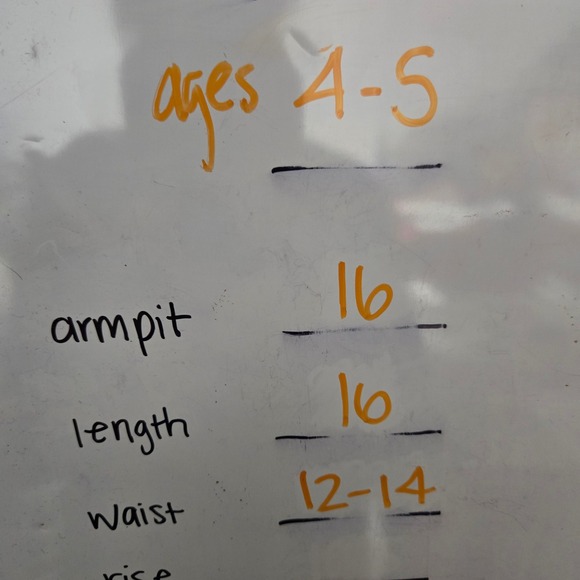 ages 4-5
armpit 16
length 16
waist 12-14
rise